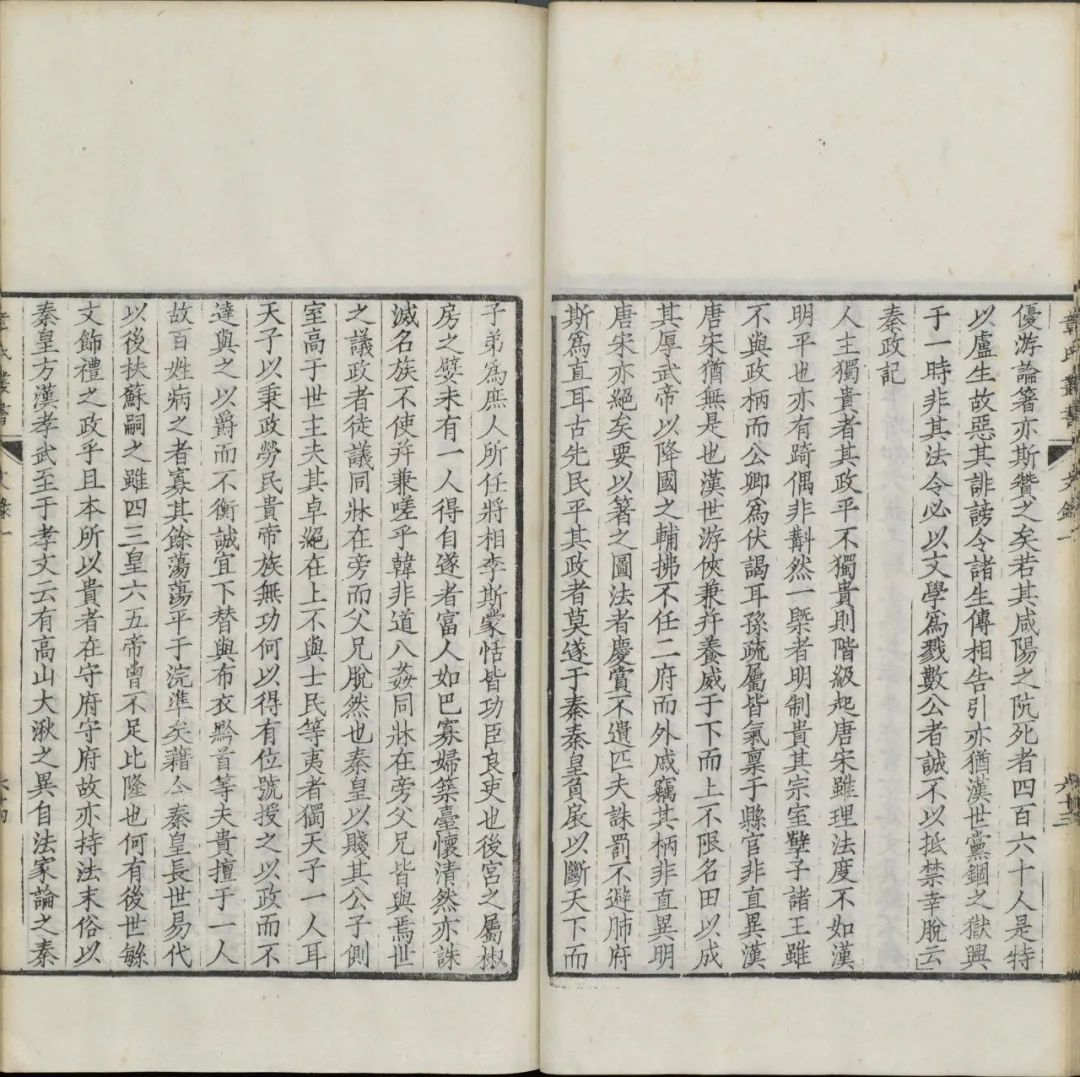 章氏叢書
文錄一
六十三
優游論著亦斯贊之矣若其咸陽之阬死者四百六十人是特
以盧生故惡其誹謗令諸生傳相告引亦猶漢世黨錮之獄興
于一時非其法令必以文學爲戮數公者誠不以抵禁幸脫云
秦政記
人主獨貴者其政平不獨貴則階級起唐宋雖理法度不如漢
明平也亦有踦偶非斠然一槩者明制貴其宗室孼子諸王雖
不與政柄而公卿爲伏謁耳孫疏屬皆氣稟于縣官非直異漢
唐宋猶無是也漢世游俠兼幷養威于下而上不限名田以成
其厚武帝以降國之輔拂不任二府而外戚竊其柄非直異明
唐宋亦絕矣要以著之圖法者慶賞不遺匹夫誅罰不避肺府
斯爲直耳古先民平其政者莫遂于秦秦皇負扆以斷天下而
子弟爲庶人所任將相李斯蒙恬皆功臣良吏也後宮之屬椒
房之嬖未有一人得自遂者富人如巴寡婦築臺懷清然亦誅
滅名族不使幷兼嗟乎韓非道八姦同牀在旁父兄皆與焉世
之議政者徒議同牀在旁而父兄脫然也秦皇以賤其公子側
室高于世主夫其卓絕在上不與士民等夷者獨天子一人耳
天子以秉政勞民貴帝族無功何以得有位號授之以政而不
達與之以爵而不衡誠宜下替與布衣黔首等夫貴擅于一人
故百姓病之者寡其餘蕩蕩平于浣準矣藉令秦皇長世易代
以後扶蘇嗣之雖四三皇六五帝曾不足比隆也何有後世繇
文飾禮之政乎且本所以貴者在守府守府故亦持法末俗以
秦皇方漢孝武至于孝文云有高山大湫之異自法家論之秦
章氏叢書
文錄一